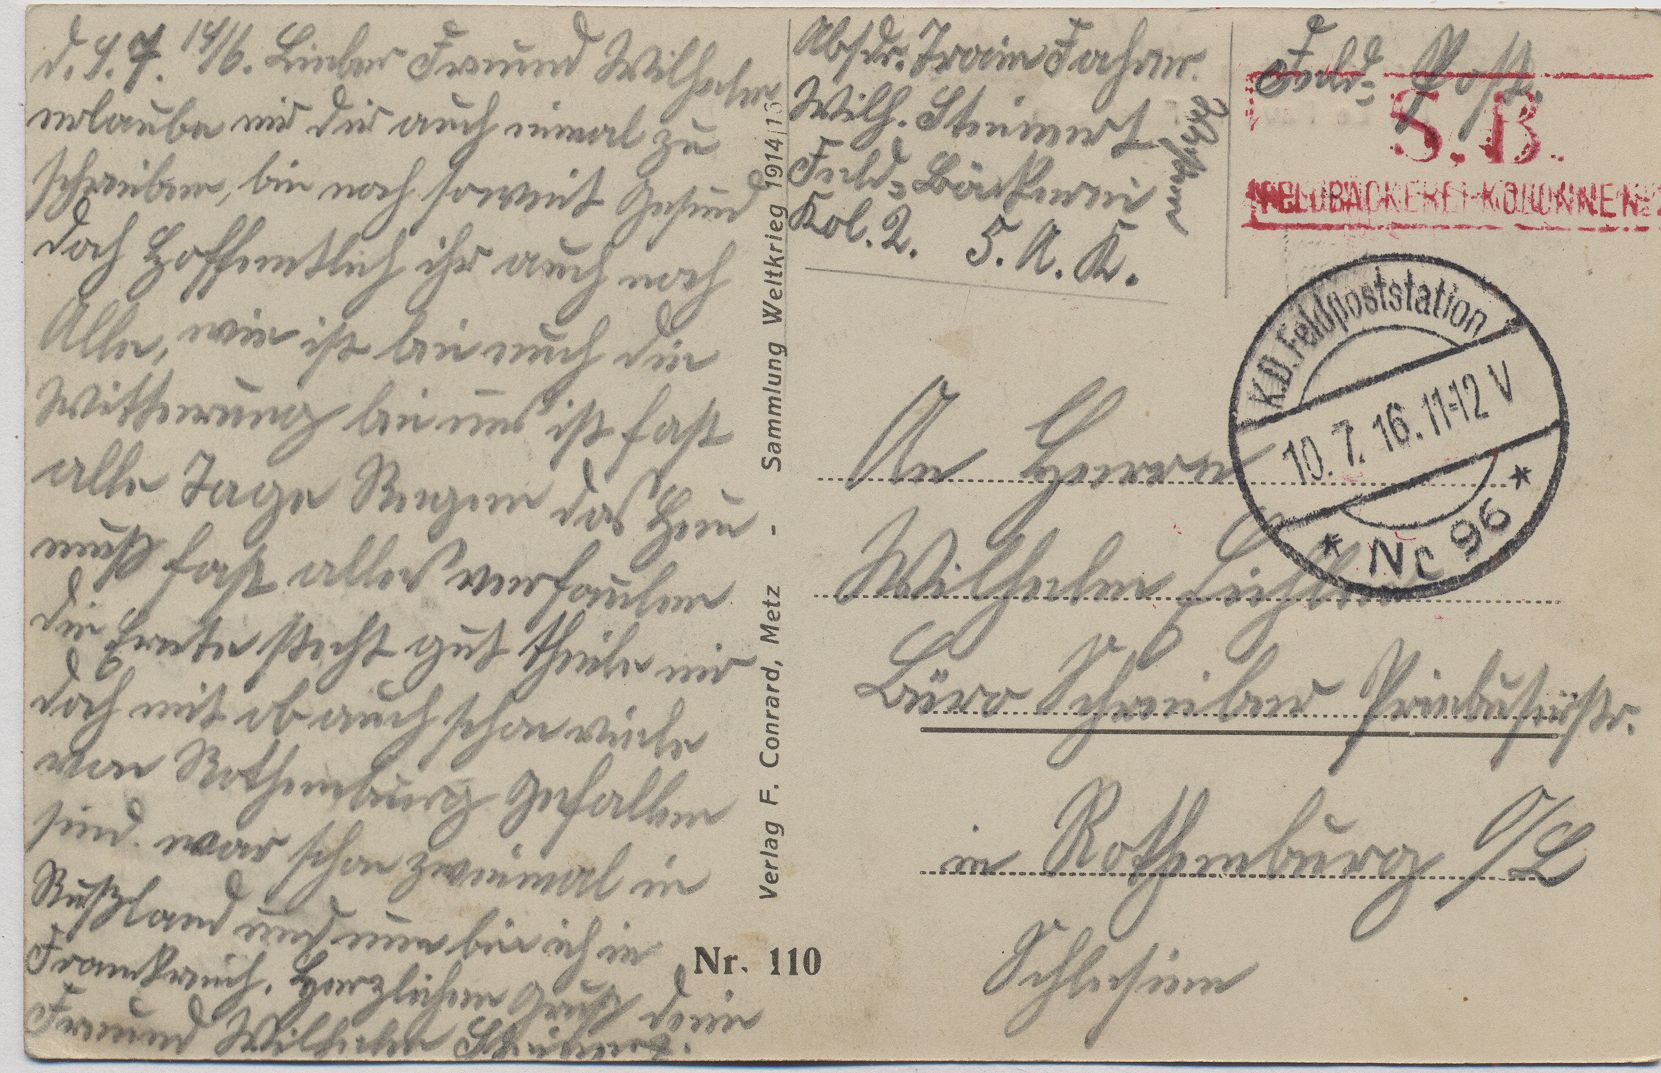 d. 9. 7. 1916. Lieber Freund Wilhelm
erlaube mir dir auch einmal zu
schreiben, bin noch soweit Gesund
doch Hoffentlich ihr auch noch
Alle, wie ist bei euch die
Witterung bei uns ist fast
alle Tage Regen das Heu
muß fast alles verfaulen
die Ernte steht gut theile mir
doch mit ob auch schon viele
von Rothenburg Gefallen
sind. war schon zweimal in
Rußland und nun bin ich in
Frankreich. Herzlichen Gruß dein
Freund Wilhelm Steinert.
Absdr. Train Fahrer
Wilh. Steinert
Feld-Bäckerei
Kol. 2. 5. A. K.
Feld-Post.
S. B.
FELDBÄCKEREI-KOLONNE Nr 2
K.D. Feldpoststation
10. 7. 16. 11-12 V
* Nr 96 *
An Herrn
Wilhelm
Büro Schreiber Priebuserstr.
in Rothenburg O/L
Schlesien
Verlag F. Conrard, Metz - Sammlung Weltkrieg 1914/15
Nr. 110